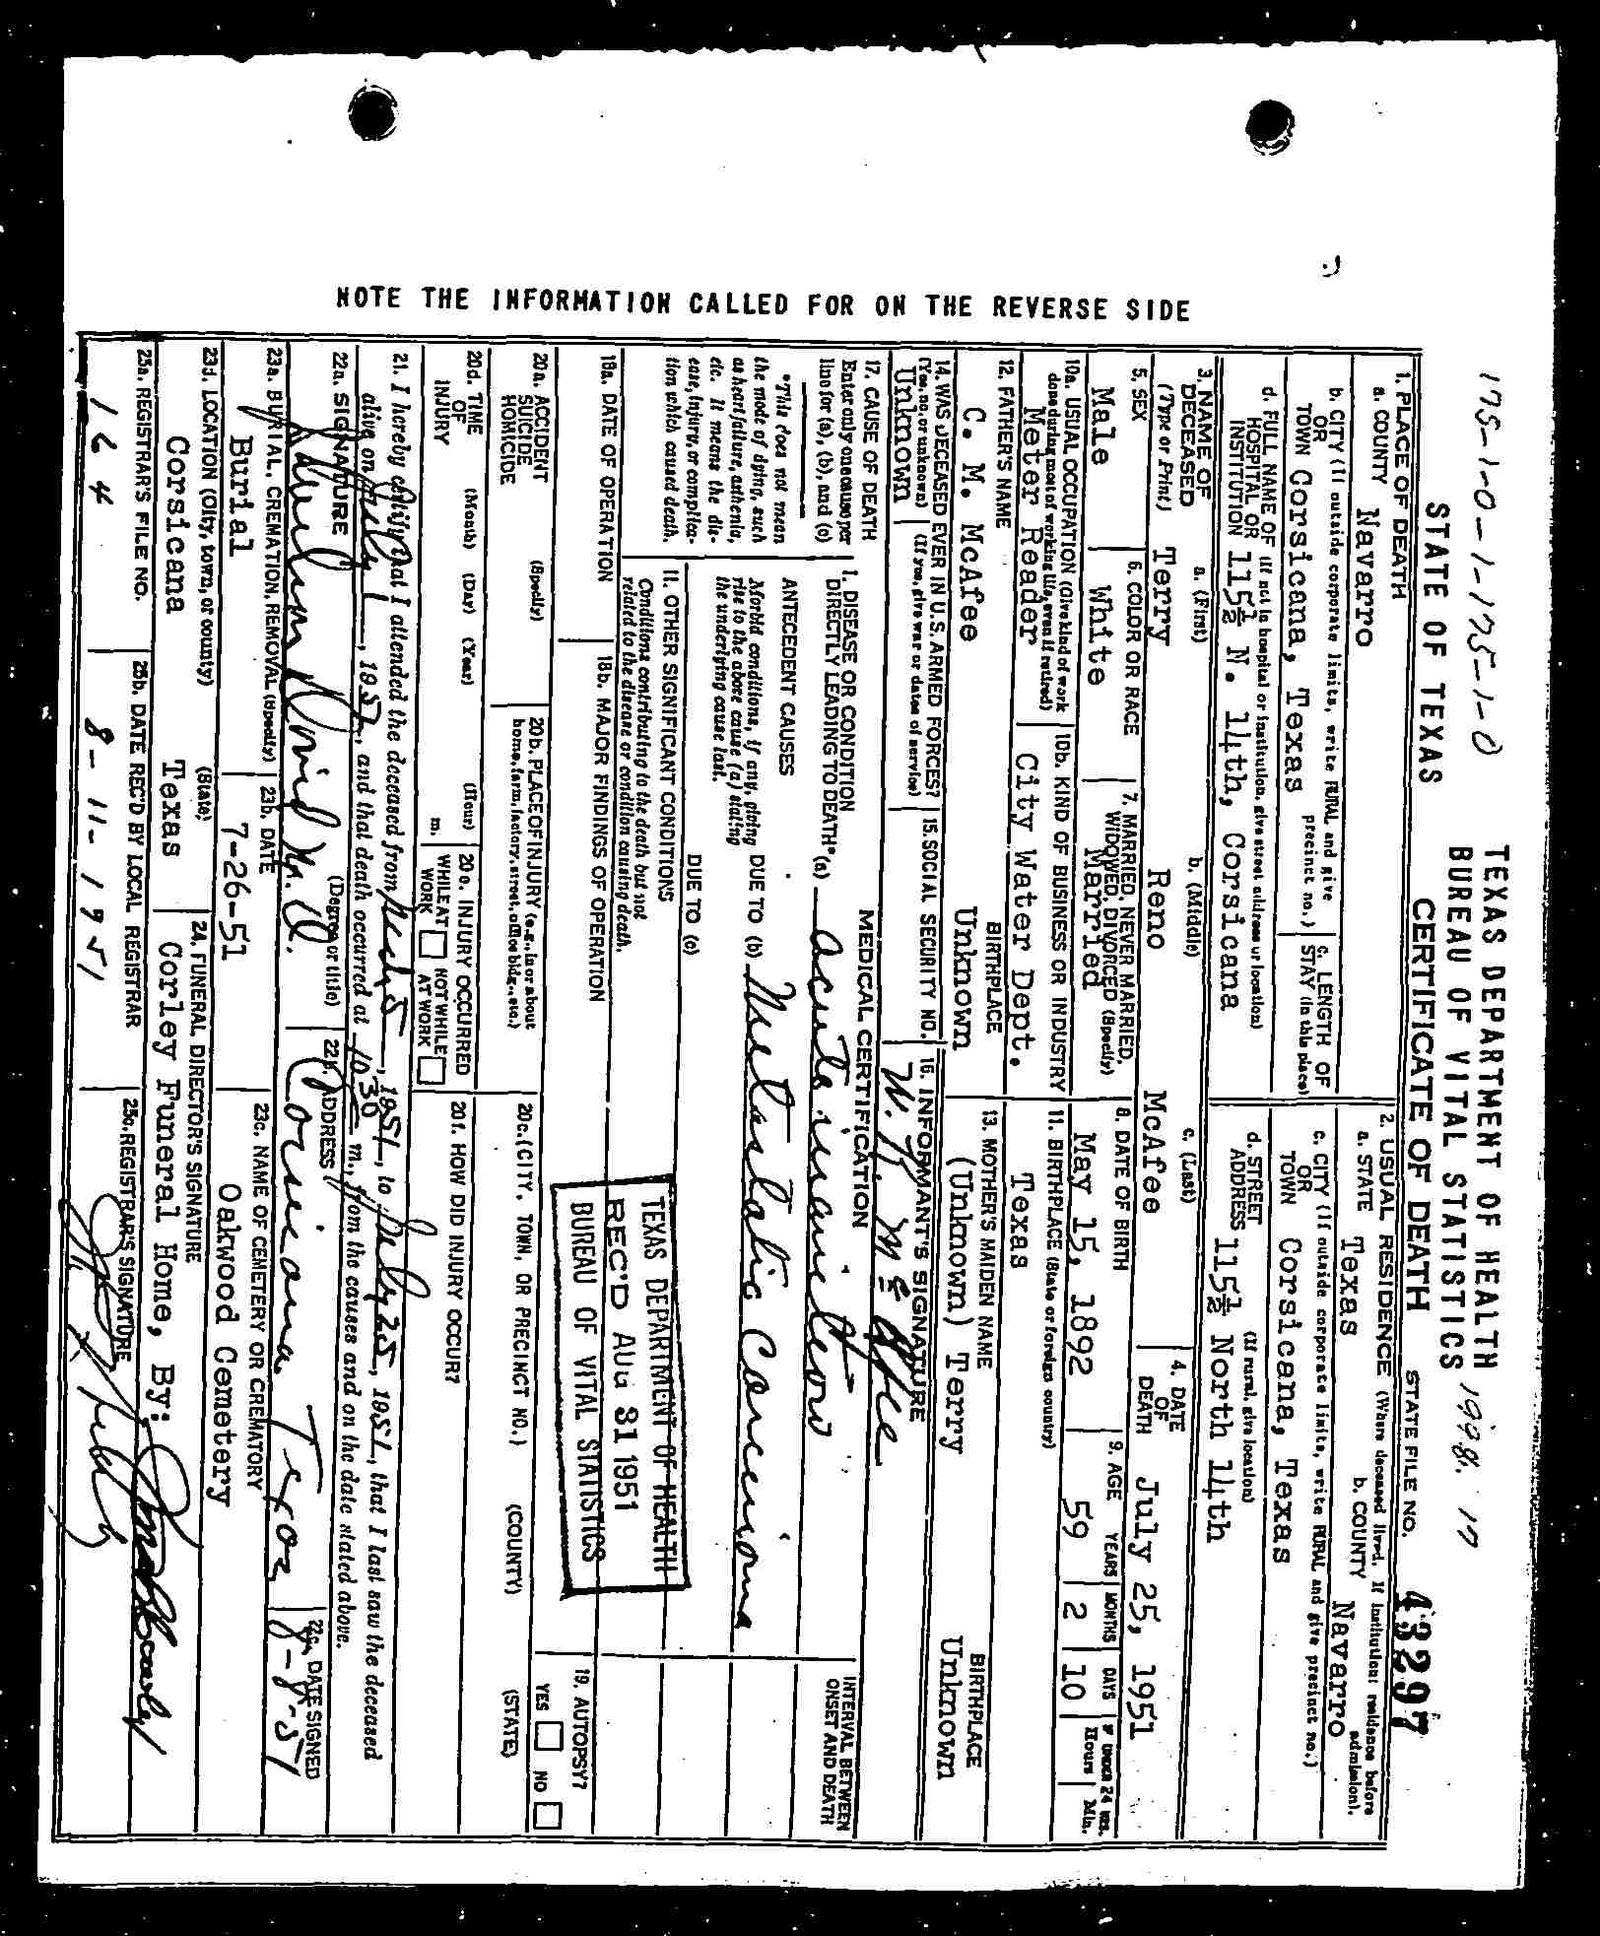 175-1-0-1-175-1-0
TEXAS DEPARTMENT OF HEALTH
BUREAU OF VITAL STATISTICS
1998. 17
STATE OF TEXAS
CERTIFICATE OF DEATH
STATE FILE NO. 43297
NOTE THE INFORMATION CALLED FOR ON THE REVERSE SIDE
1. PLACE OF DEATH
a. COUNTY Navarro
2. USUAL RESIDENCE (Where deceased lived. If institution: residence before admission).
a. STATE Texas
b. COUNTY Navarro
b. CITY (If outside corporate limits, write RURAL and give precinct no.)
OR
TOWN Corsicana, Texas
c. LENGTH OF STAY (in this place)
c. CITY (If outside corporate limits, write RURAL and give precinct no.)
OR
TOWN Corsicana, Texas
d. FULL NAME OF (If not in hospital or institution, give street address or location)
HOSPITAL OR
INSTITUTION 115½ N. 14th, Corsicana
d. STREET (If rural, give location)
ADDRESS 115½ North 14th
3. NAME OF DECEASED (Type or Print)
a. (First) Terry
b. (Middle) Reno
c. (Last) McAfee
4. DATE OF DEATH July 25, 1951
5. SEX Male
6. COLOR OR RACE White
7. MARRIED, NEVER MARRIED, WIDOWED, DIVORCED (Specify) Married
8. DATE OF BIRTH May 15, 1892
9. AGE YEARS 59 MONTHS 2 DAYS 10 IF UNDER 24 HRS. Hours Min.
10a. USUAL OCCUPATION (Give kind of work done during most of working life, even if retired) Meter Reader
10b. KIND OF BUSINESS OR INDUSTRY City Water Dept.
11. BIRTHPLACE (State or foreign country) Texas
12. FATHER'S NAME C. M. McAfee
BIRTHPLACE Unknown
13. MOTHER'S MAIDEN NAME (Unknown) Terry
BIRTHPLACE Unknown
14. WAS DECEASED EVER IN U.S. ARMED FORCES?
(Yes, no, or unknown) (If yes, give war or dates of service)
Unknown
15. SOCIAL SECURITY NO.
16. INFORMANT'S SIGNATURE
McAfee
17. CAUSE OF DEATH
Enter only one cause per line for (a), (b), and (c)
MEDICAL CERTIFICATION
INTERVAL BETWEEN ONSET AND DEATH
I. DISEASE OR CONDITION
DIRECTLY LEADING TO DEATH* (a) acute inanition
*This does not mean the mode of dying, such as heart failure, asthenia, etc. It means the disease, injury, or complication which caused death.
ANTECEDENT CAUSES
Morbid conditions, if any, giving rise to the above cause (a) stating the underlying cause last.
DUE TO (b) Metastatic Carcinoma
DUE TO (c)
II. OTHER SIGNIFICANT CONDITIONS
Conditions contributing to the death but not related to the disease or condition causing death.
TEXAS DEPARTMENT OF HEALTH
REC'D AUG 31 1951
BUREAU OF VITAL STATISTICS
18a. DATE OF OPERATION
18b. MAJOR FINDINGS OF OPERATION
19. AUTOPSY?
YES NO
20a. ACCIDENT (Specify)
SUICIDE
HOMICIDE
20b. PLACE OF INJURY (e.g., in or about home, farm, factory, street, office bldg., etc.)
20c. (CITY, TOWN, OR PRECINCT NO.) (COUNTY) (STATE)
20d. TIME OF INJURY (Month) (Day) (Year) (Hour) m.
20e. INJURY OCCURRED
WHILE AT WORK NOT WHILE AT WORK
20f. HOW DID INJURY OCCUR?
21. I hereby certify that I attended the deceased from 5, 1951, to July 25, 1951, that I last saw the deceased
alive on July, 1951, and that death occurred at 10 30 m., from the causes and on the date stated above.
22a. SIGNATURE (Degree or title)
M.D.
22b. ADDRESS Corsicana Texas
22c. DATE SIGNED 8-8-51
23a. BURIAL, CREMATION, REMOVAL (Specify) Burial
23b. DATE 7-26-51
23c. NAME OF CEMETERY OR CREMATORY Oakwood Cemetery
23d. LOCATION (City, town, or county) (State)
Corsicana Texas
24. FUNERAL DIRECTOR'S SIGNATURE
Corley Funeral Home, By:
25a. REGISTRAR'S FILE NO. 164
25b. DATE REC'D BY LOCAL REGISTRAR 8-11-1951
25c. REGISTRAR'S SIGNATURE